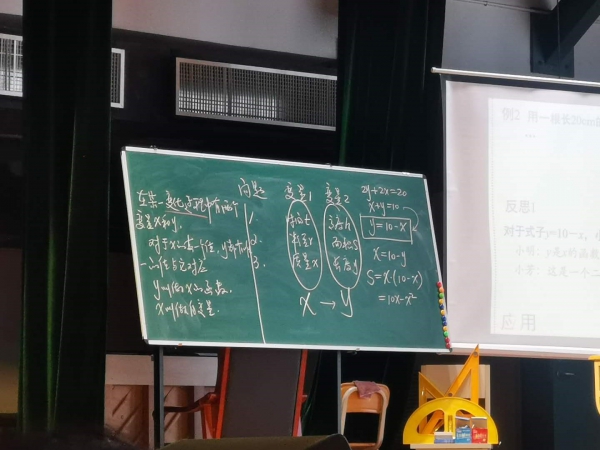 在某一变化过程中有两个
变量x和y,
对于x的每一个值, y都有
一个值与它对应
y叫做x的函数.
x叫做自变量.
问题
1.
2.
3.
变量1 变量2
时间t 高度h
数量x 面积S
质量x 长度y
x → y
2y+2x=20
x+y=10
y=10-x
x=10-y
S=x·(10-x)
=10x-x²
例2 用一根长20cm的
...
反思1
对于式子y=10-x, 小
小明: y是x的函数
小芳: 这是一个二
应用